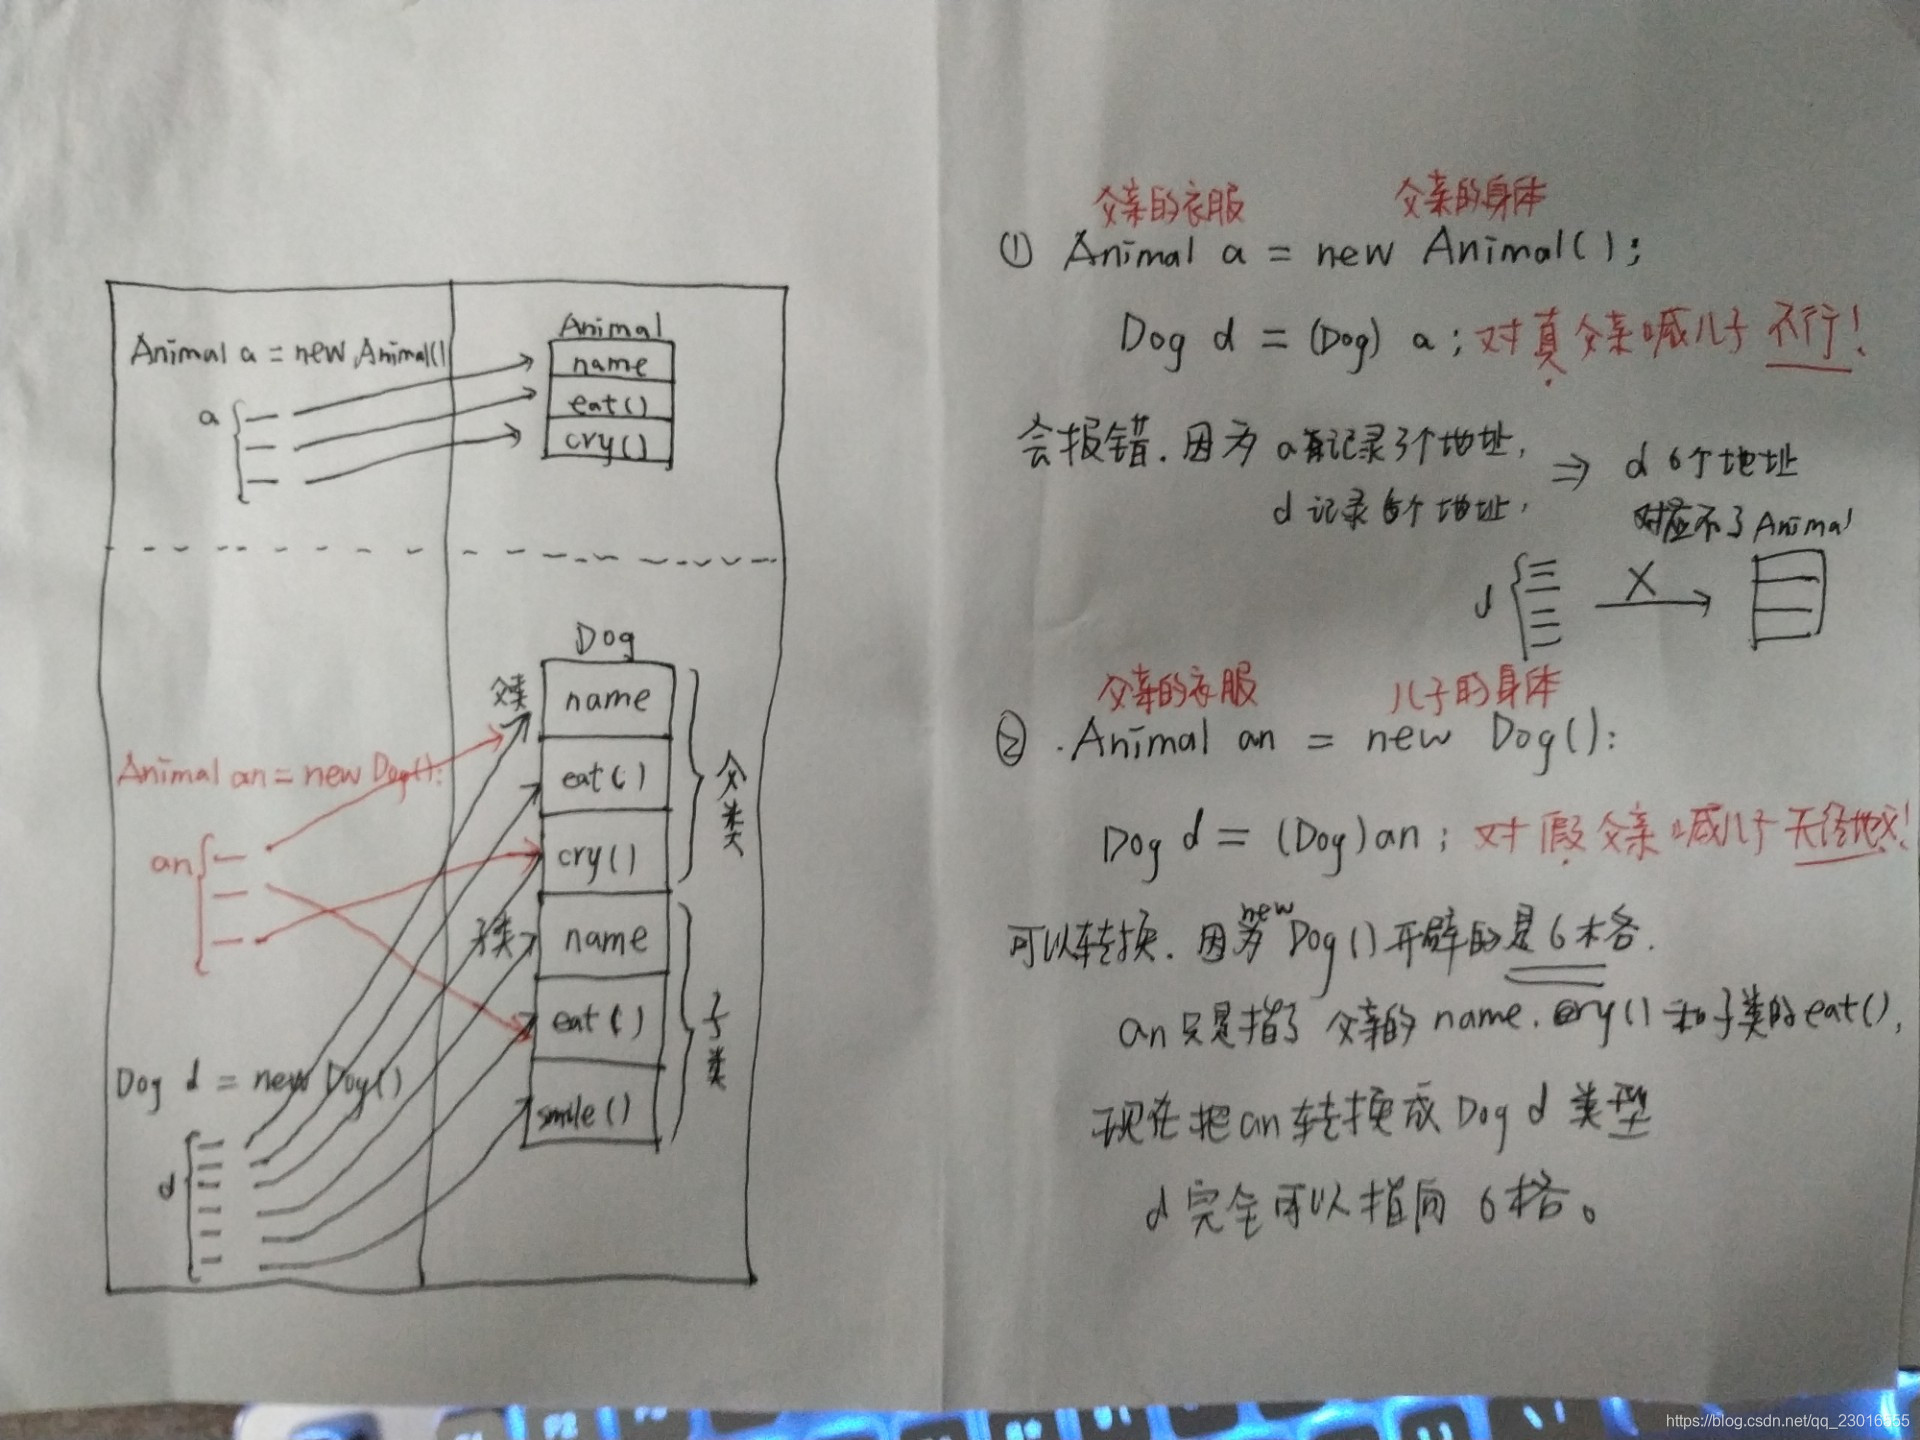 Animal a = new Animal()
Animal
name
eat()
cry()
a
Dog
父类
name
eat()
cry()
父类
Animal an = new Dog();
an
子类
name
eat()
smile()
子类
Dog d = new Dog()
d
父亲的衣服 父亲的身体
① Animal a = new Animal();
Dog d = (Dog) a; 对真父亲喊儿子 不行!
会报错. 因为 a 记录3个地址,
d 记录6个地址,
⇒ d 6个地址
对应不了 Animal
d
X
父亲的衣服 儿子的身体
② Animal an = new Dog();
Dog d = (Dog)an; 对假父亲喊儿子 天经地义!
可以转换. 因为new Dog()开辟的是6格.
an只是指了 父亲的 name. cry()和子类的eat(),
现在把an转换成Dog d 类型
d 完全可以指向 6格。
F2
https://blog.csdn.net/qq_23016555